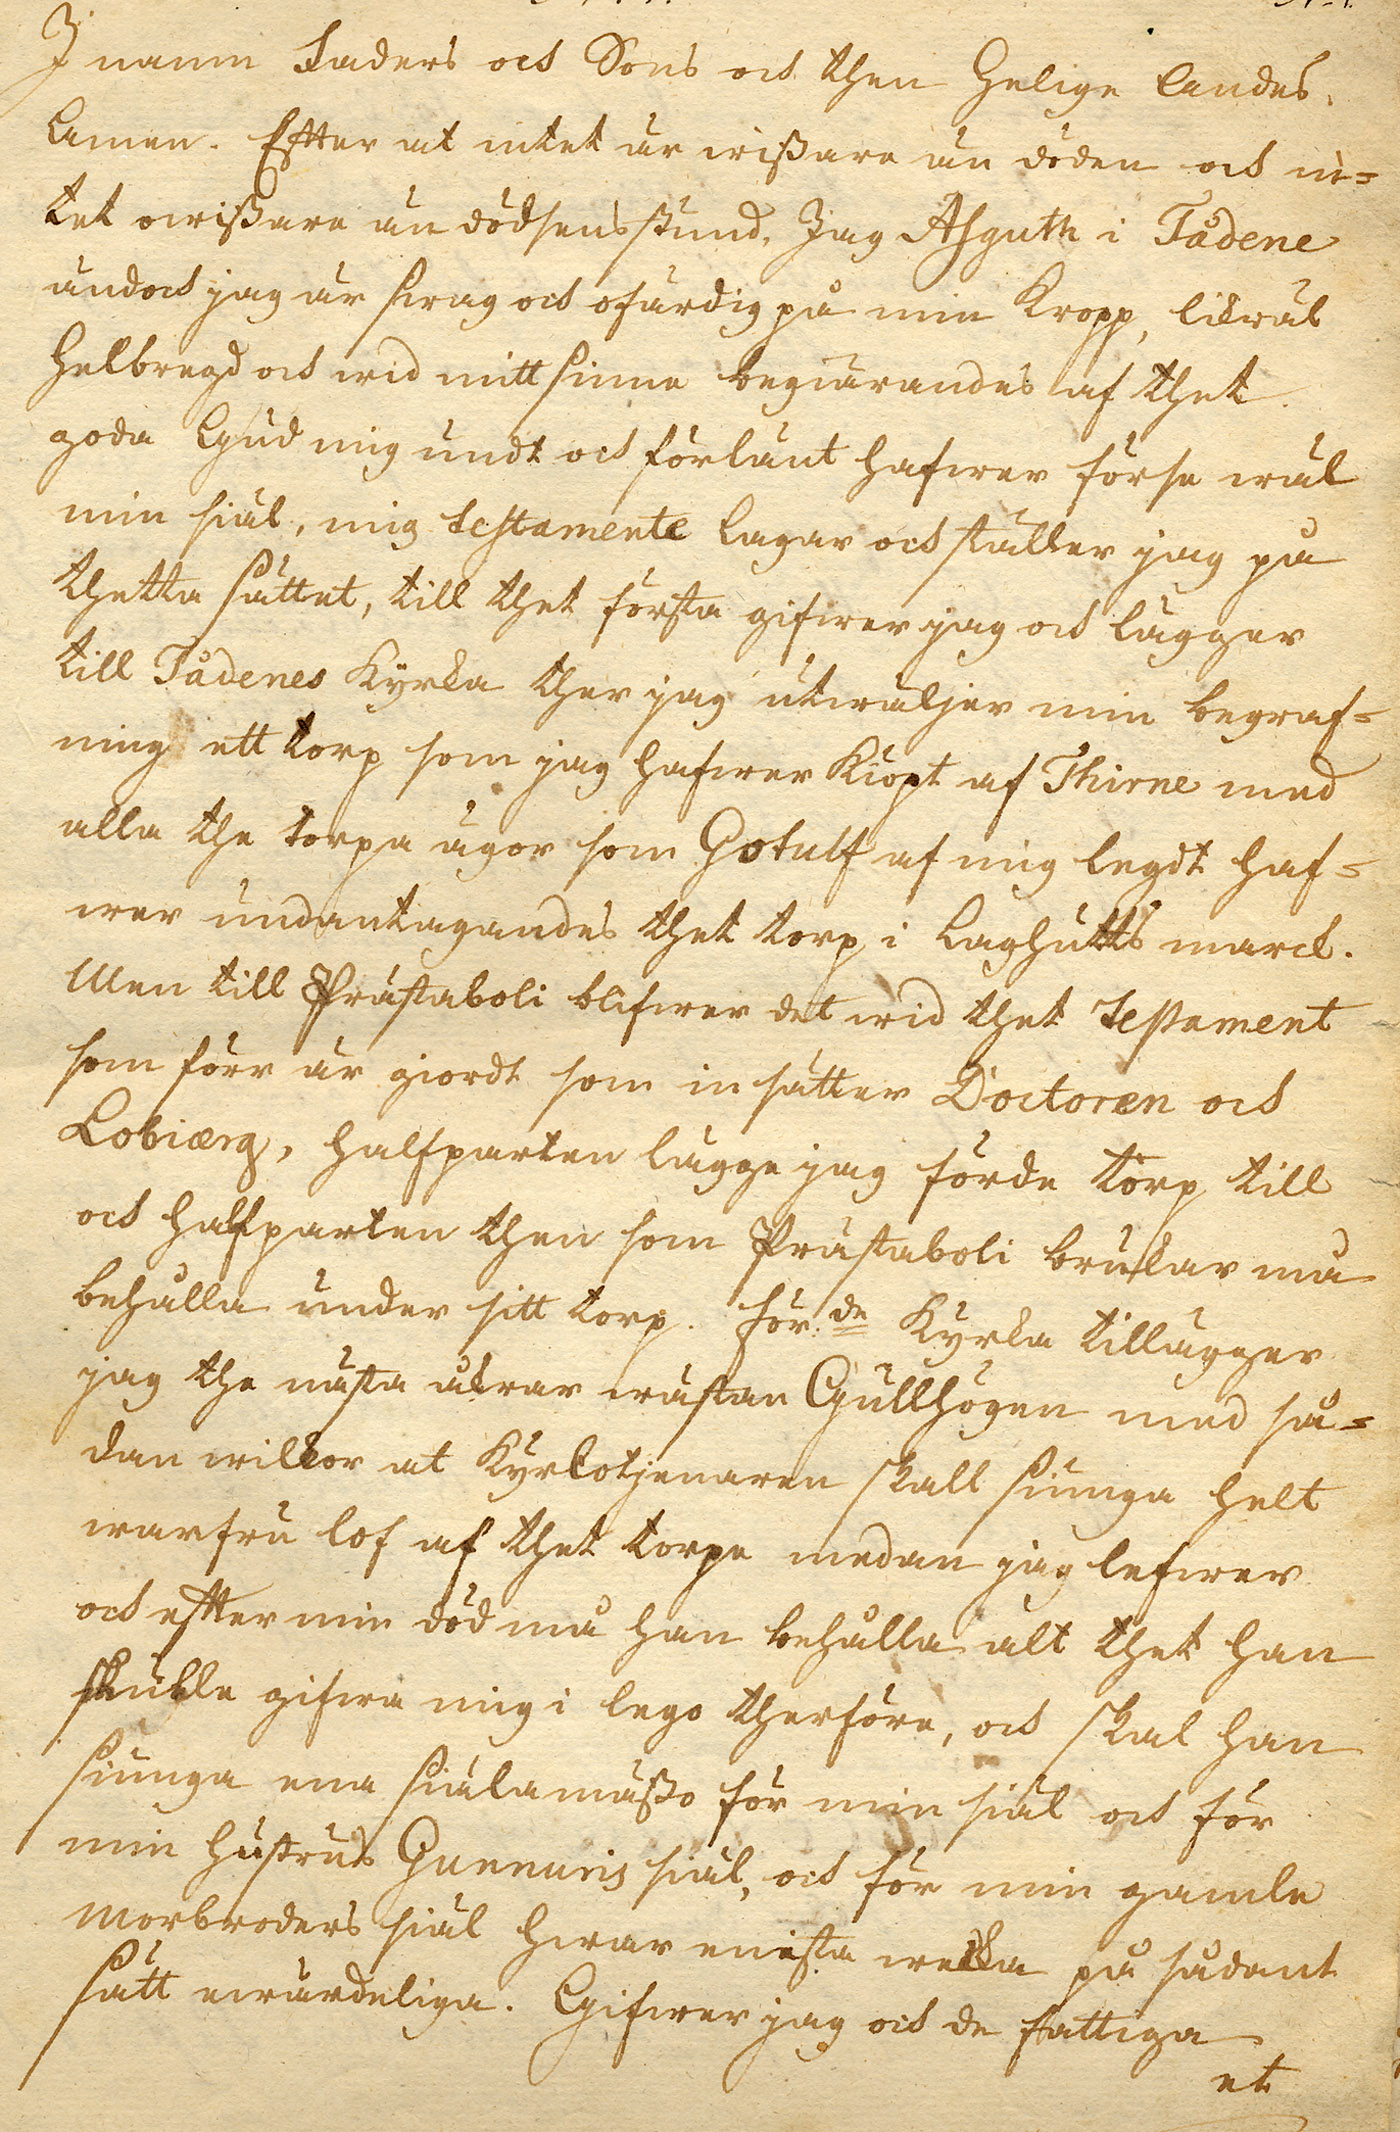 I namn Faders och Sons och then Helige Andes.
Amen. Efter at intet är wißare än döden och in=
tet owißare än dödsens stund, Jag Asguth i Tådene
ändoch jag är swag och ofärdig på min Kropp, likwäl
helbregd och wid mitt sinne begiärandes af thet
goda Gud mig undt och förlänt hafwer förse wäl
min siäl, mig testamente lagar och ställer jag på
thetta sättet, till thet första gifwer jag och lägger
till Tådenes Kyrka ther jag utwäljer min begraf=
ning ett torp som jag hafwer Kiöpt af Thirne med
alla the torpa ägor som Gotulf af mig legdt haf=
wer undantagandes thet torp i Laghutts marck.
Men till Prästaboli blifwer det wid thet Testament
som förr är giordt som insätter Doctoren och
Lobiærg, halfparten lägge jag förde torp till
och halfparten then som Prästaboli brukar må
behålla under sitt torp. för:de Kyrka tillägger
jag the nästa åkrar wästan Gullhögen med så=
dan wilkor at Kyrkotjenaren skall siunga helt
warfru lof af thet torpe medan jag lefwer
och efter min död må han behålla alt thet han
skulle gifwa mig i lego therföre, och skal han
siunga ena siälamäßo för min siäl och för
min hustrus Gunnuris siäl, och för min gamle
morbroders siäl hwar enista wecka på sådant
sätt ewärdeliga. Gifwer jag och de fattiga
et